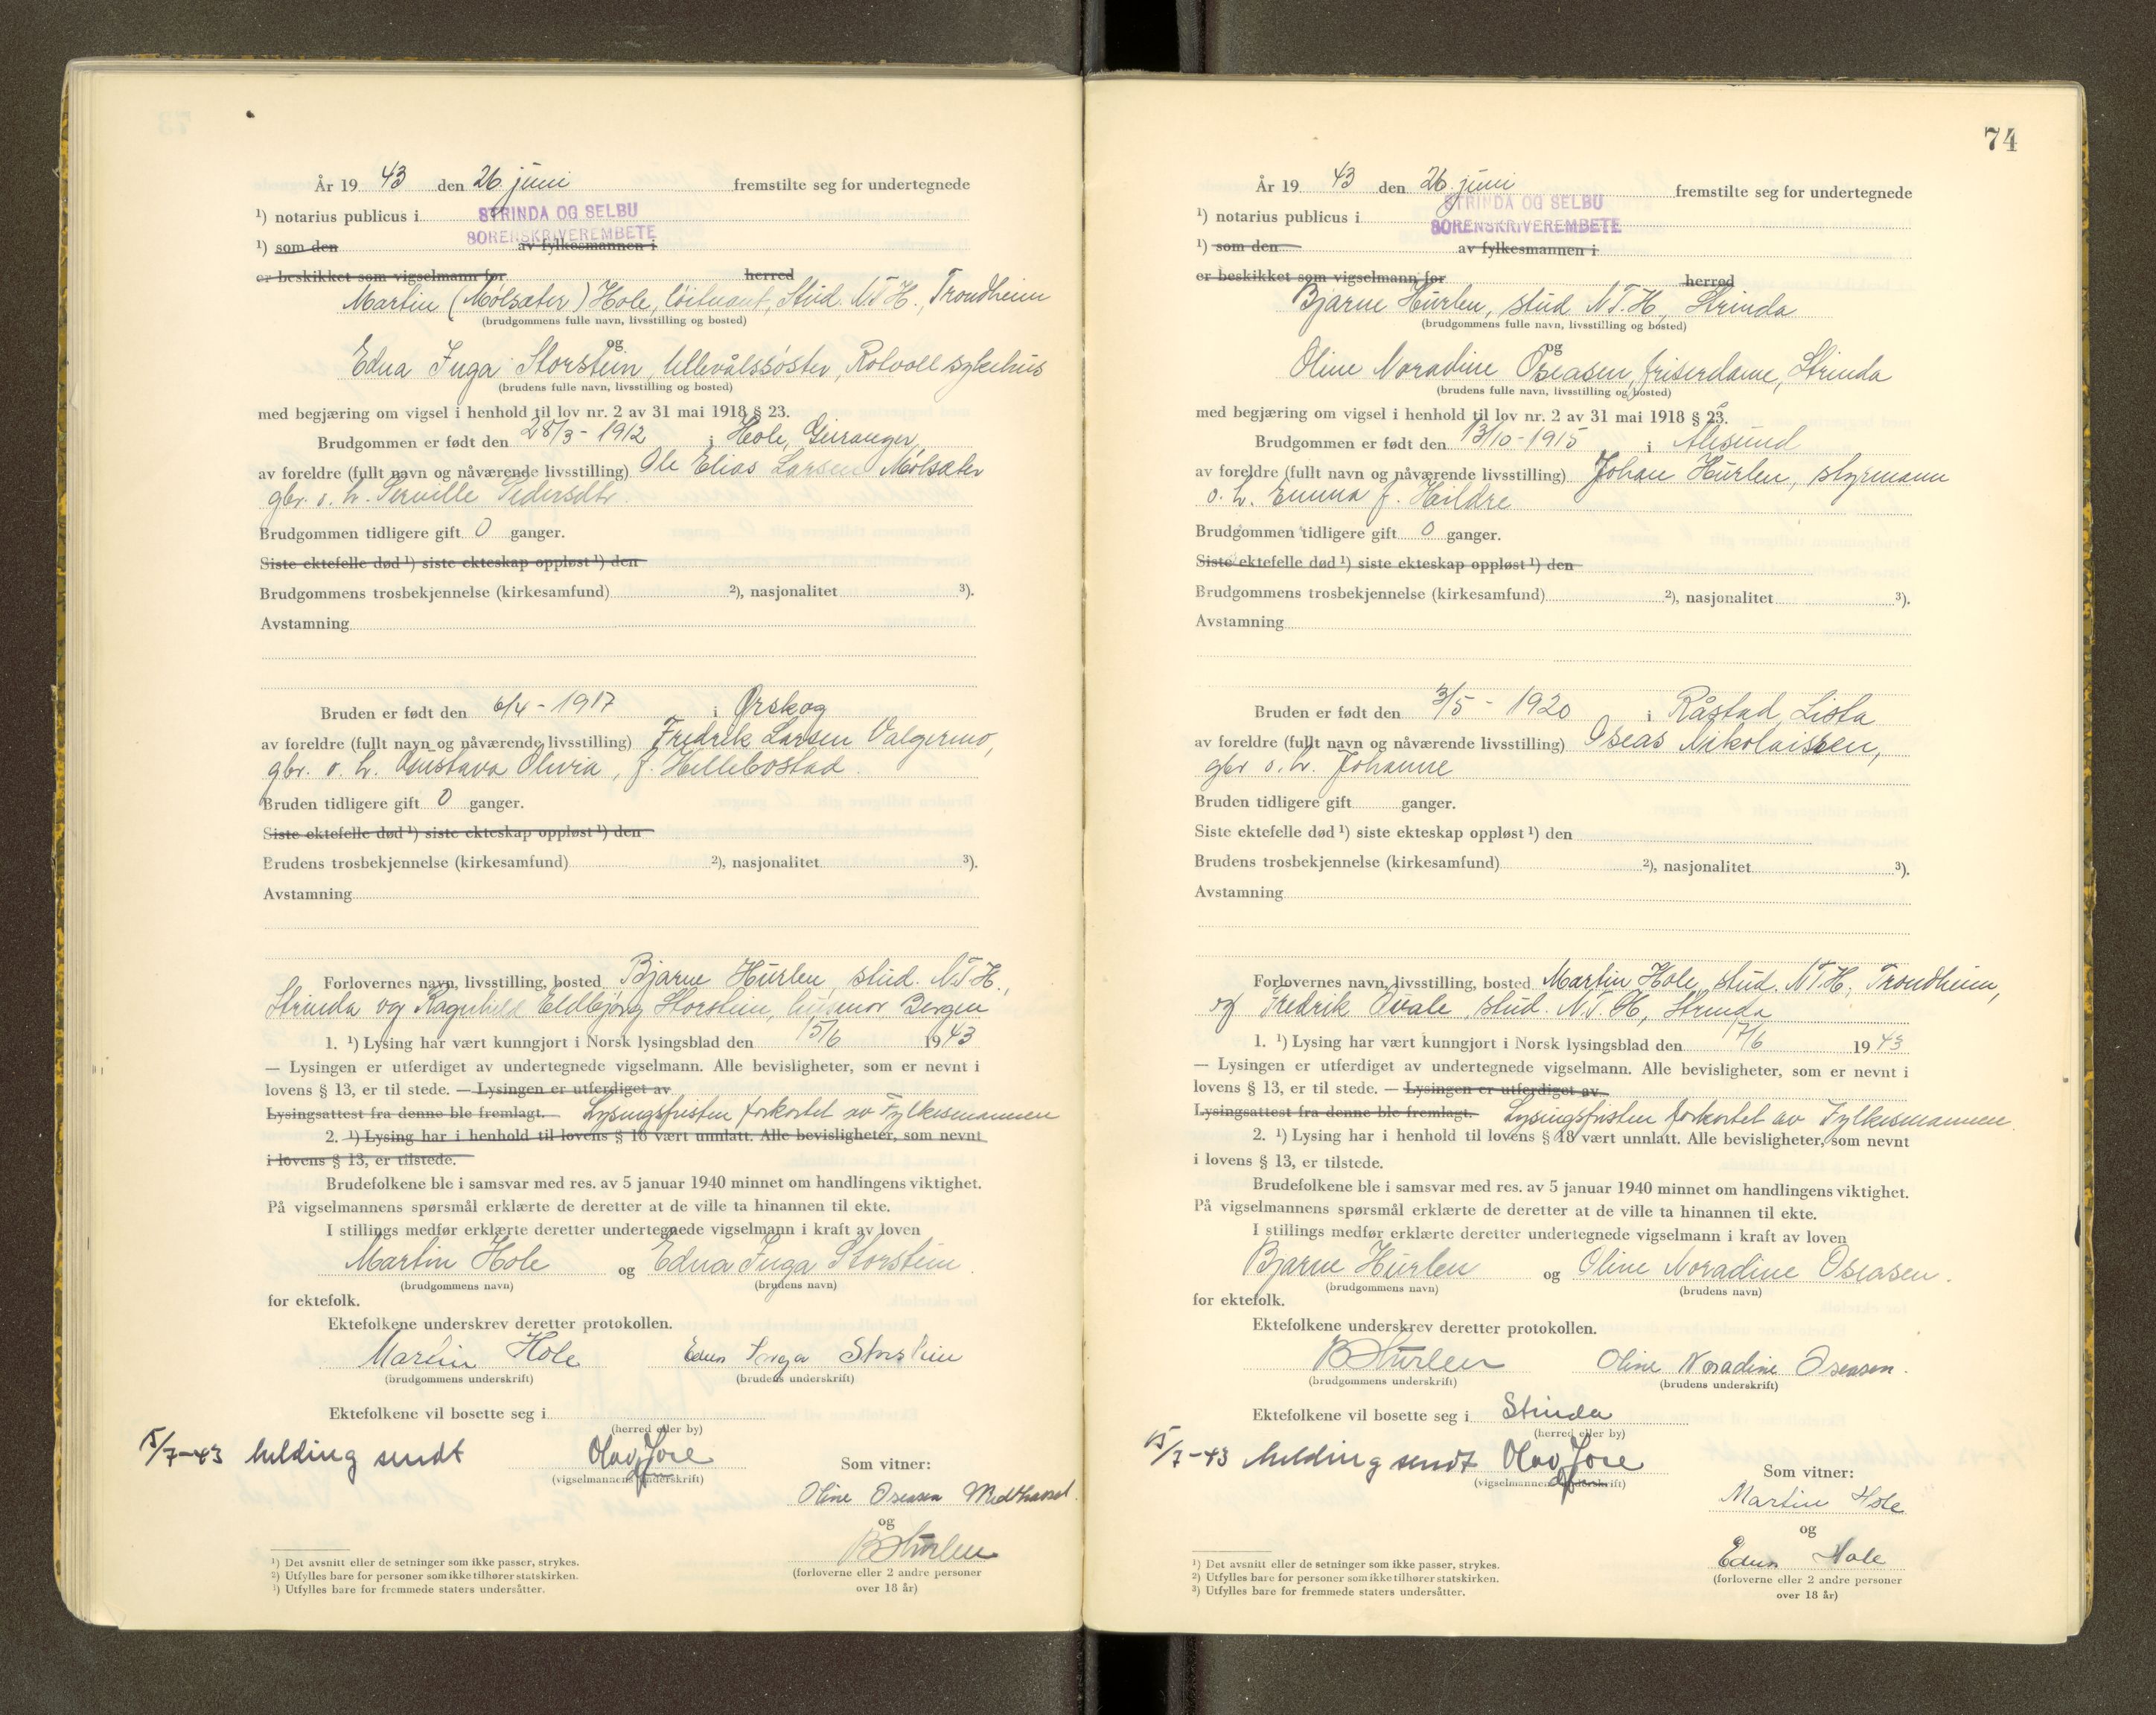 År 19 43 den 26. juni fremstilte seg for undertegnede
¹) notarius publicus i STRINDA OG SELBU
SORENSKRIVEREMBETE
¹) som den av fylkesmannen i
er beskikket som vigselmann for herred
Martin (Mølsæter) Hole, løitnant, Stud. N.T.H., Trondheim
(brudgommens fulle navn, livsstilling og bosted)
og
Edna Inga Storstein, Ullevålssøster, Rotvoll sykehus
(brudens fulle navn, livsstilling og bosted)
med begjæring om vigsel i henhold til lov nr. 2 av 31 mai 1918 § 23.
Brudgommen er født den 28/3 - 1912 i Hole, Geiranger
av foreldre (fullt navn og nåværende livsstilling) Ole Elias Larsen Mølsæter
gbr. o. h. Pedersdtr.
Brudgommen tidligere gift 0 ganger.
Siste ektefelle død ¹) siste ekteskap oppløst ¹) den
Brudgommens trosbekjennelse (kirkesamfund) ²), nasjonalitet ³).
Avstamning
Bruden er født den 6/4 - 1917 i Ørskog
av foreldre (fullt navn og nåværende livsstilling) Fredrik Larsen Valgermo,
gbr. o. h. Gustava Olivia, f. Hellebostad.
Bruden tidligere gift 0 ganger.
Siste ektefelle død ¹) siste ekteskap oppløst ¹) den
Brudens trosbekjennelse (kirkesamfund) ²), nasjonalitet ³).
Avstamning
Forlovernes navn, livsstilling, bosted Bjarne Hurlen, stud. N.T.H.,
Strinda og Ragnhild Eldbjørg Storstein, husmor Bergen
1. ¹) Lysing har vært kunngjort i Norsk lysingsblad den 15/6 1943
— Lysingen er utferdiget av undertegnede vigselmann. Alle bevisligheter, som er nevnt i
lovens § 13, er til stede. — Lysingen er utferdiget av
Lysingsattest fra denne ble fremlagt. Lysingsfristen forkortet av Fylkesmannen
2. ¹) Lysing har i henhold til lovens § 18 vært unnlatt. Alle bevisligheter, som nevnt
i lovens § 13, er tilstede.
Brudefolkene ble i samsvar med res. av 5 januar 1940 minnet om handlingens viktighet.
På vigselmannens spørsmål erklærte de deretter at de ville ta hinannen til ekte.
I stillings medfør erklærte deretter undertegnede vigselmann i kraft av loven
Martin Hole og Edna Inga Storstein.
(brudgommens navn) (brudens navn)
for ektefolk.
Ektefolkene underskrev deretter protokollen.
Martin Hole Edna Inga Storstein
(brudgommens underskrift) (brudens underskrift)
Ektefolkene vil bosette seg i
(herred eller by)
15/7-43 melding sendt Olav Jore
(vigselmannens underskrift)
Som vitner:
Oline Oseasen
og
B Hurlen
(forloverne eller 2 andre personer
over 18 år)
¹) Det avsnitt eller de setninger som ikke passer, strykes.
²) Utfylles bare for personer som ikke tilhører statskirken.
³) Utfylles bare for fremmede staters undersåtter.
74
År 19 43 den 26. juni fremstilte seg for undertegnede
¹) notarius publicus i STRINDA OG SELBU
SORENSKRIVEREMBETE
¹) som den av fylkesmannen i
er beskikket som vigselmann for herred
Bjarne Hurlen, stud N.T.H, Strinda
(brudgommens fulle navn, livsstilling og bosted)
og
Oline Noradine Oseasen, friserdame, Strinda
(brudens fulle navn, livsstilling og bosted)
med begjæring om vigsel i henhold til lov nr. 2 av 31 mai 1918 § 23.
Brudgommen er født den 13/10-1915 i Ålesund
av foreldre (fullt navn og nåværende livsstilling) Johan Hurlen, styrmann
o. h. Emma f. Hildre
Brudgommen tidligere gift 0 ganger.
Siste ektefelle død ¹) siste ekteskap oppløst ¹) den
Brudgommens trosbekjennelse (kirkesamfund) ²), nasjonalitet ³).
Avstamning
Bruden er født den 3/5 - 1920 i Råstad, Lista
av foreldre (fullt navn og nåværende livsstilling) Oseas Nikolaissen,
gbr o. h. Johanne
Bruden tidligere gift ganger.
Siste ektefelle død ¹) siste ekteskap oppløst ¹) den
Brudens trosbekjennelse (kirkesamfund) ²), nasjonalitet ³).
Avstamning
Forlovernes navn, livsstilling, bosted Martin Hole, stud. N.T.H., Trondheim,
og Fredrik Qvale, stud. N.T.H, Strinda
1. ¹) Lysing har vært kunngjort i Norsk lysingsblad den 17/6 1943
— Lysingen er utferdiget av undertegnede vigselmann. Alle bevisligheter, som er nevnt i
lovens § 13, er til stede. — Lysingen er utferdiget av
Lysingsattest fra denne ble fremlagt. Lysingsfristen forkortet av Fylkesmannen.
2. ¹) Lysing har i henhold til lovens § 18 vært unnlatt. Alle bevisligheter, som nevnt
i lovens § 13, er tilstede.
Brudefolkene ble i samsvar med res. av 5 januar 1940 minnet om handlingens viktighet.
På vigselmannens spørsmål erklærte de deretter at de ville ta hinannen til ekte.
I stillings medfør erklærte deretter undertegnede vigselmann i kraft av loven
Bjarne Hurlen og Oline Noradine Oseasen.
(brudgommens navn) (brudens navn)
for ektefolk.
Ektefolkene underskrev deretter protokollen.
B Hurlen Oline Noradine Oseasen.
(brudgommens underskrift) (brudens underskrift)
Ektefolkene vil bosette seg i Strinda
(herred eller by)
15/7-43 melding sendt Olav Jore
(vigselmannens underskrift)
Som vitner:
Martin Hole
og
Edna Hole
(forloverne eller 2 andre personer
over 18 år)
¹) Det avsnitt eller de setninger som ikke passer, strykes.
²) Utfylles bare for personer som ikke tilhører statskirken.
³) Utfylles bare for fremmede staters undersåtter.